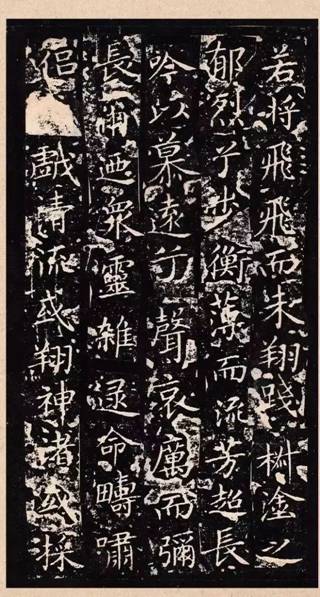 若将飛飛而未翔踐椒塗之
郁烈兮步衡薄而流芳超長
吟以慕遠兮聲哀厲而彌
長爾迺眾靈雜遝命疇嘯
侶戲清流或翔神渚或採